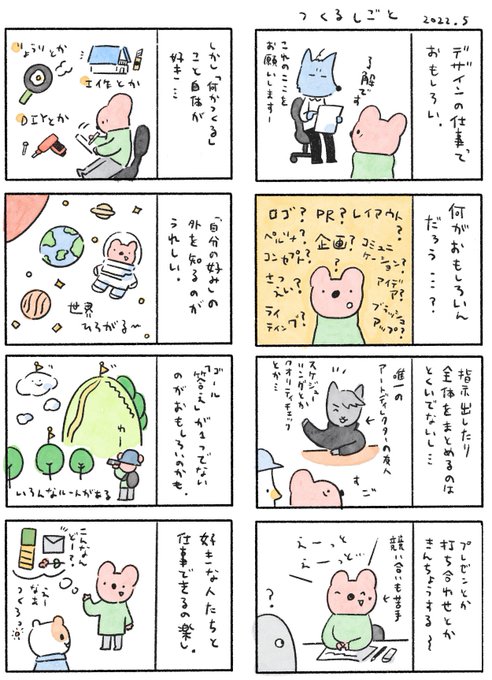 つくるしごと
2022.5
デザインの仕事って
おもしろい。
了解です
これのここを
お願いしますー
何がおもしろいん
だろう…?
ロゴ?
PR?
レイアウト?
ペルソナ?
企画?
コミュニ
ケーション?
コンセプト?
?
アイデア?
さつ
えい?
ライ
ティング?
ブラッシュ
アップ?
指示出したり
全体をまとめるのは
とくいでないし…
唯一の
アートディレクターの友人
スケジュー
リングとか
クオリティチェック
とか…
すご
プレゼンとか
打ち合わせとか
きんちょうする〜
えーっと
えーっとど
競い合いも苦手
?
しかし「何かつくる」
こと自体が
好き…
りょうりとか
工作とか
DIYとか
「自分の好み」の
外を知るのが
うれしい。
世界
ひろがる〜
「ゴール
答え」が1つでない
のがおもしろいのかも。
わー
いろんなルートがある
好きな人たちと
仕事できるの楽し。
こんなん
どー?
えー
なに
つくろっ